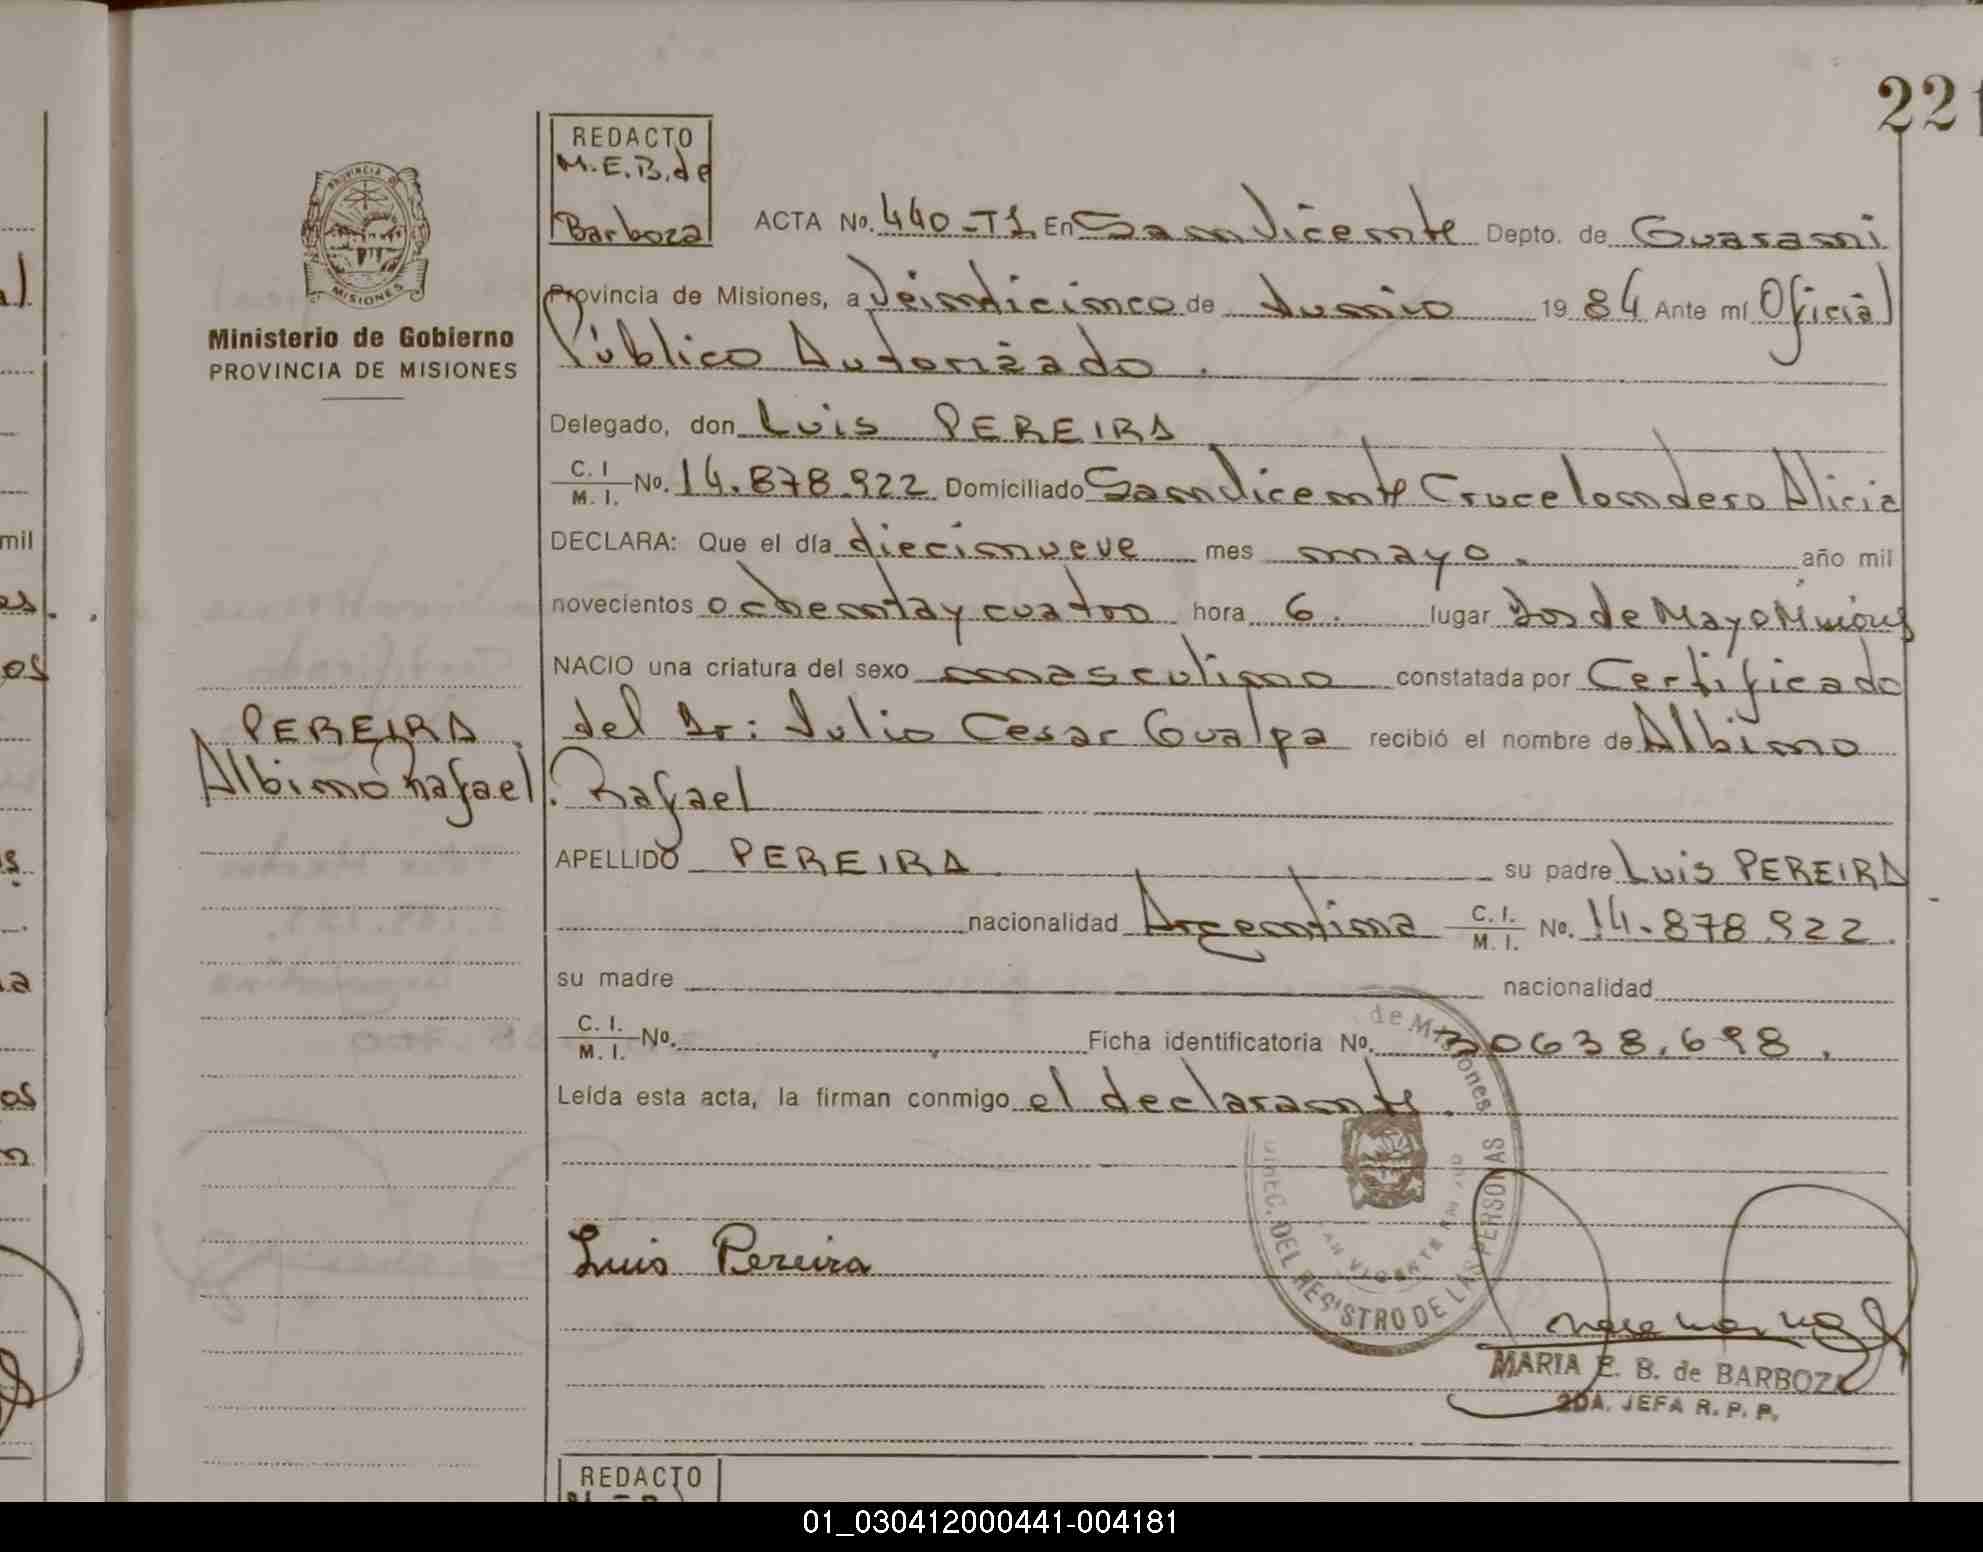 22
REDACTO
M.E.B. de
Barboza
ACTA No. 440-T1 En San Vicente Depto. de Guarani
Provincia de Misiones, a Veinticinco de Junio 1984 Ante mí Oficial
Público Autorizado.
Delegado, don Luis PEREIRA
C. I. / M. I. No. 14.878.922 Domiciliado San Vicente Cruce Landero Alicia
DECLARA: Que el día diecinueve mes mayo. año mil
novecientos ochenta y cuatro hora 6. lugar Dos de Mayo Mnes
NACIO una criatura del sexo masculino constatada por Certificado
del Dr: Julio Cesar Gualpa recibió el nombre de Albino
Rafael
APELLIDO PEREIRA su padre Luis PEREIRA
nacionalidad Argentina C. I. / M. I. No. 14.878.922.
su madre nacionalidad
C. I. / M. I. No. Ficha identificatoria No. 30638.698.
Leída esta acta, la firman conmigo el declarante.
Luis Pereira
MARIA E. B. de BARBOZA
2DA. JEFA R. P. P.
PROVINCIA DE
MISIONES
Ministerio de Gobierno
PROVINCIA DE MISIONES
PEREIRA
Albino Rafael.
de Misiones
DEL REGISTRO DE LAS PERSONAS
SAN VICENTE
REDACTO
01_030412000441-004181